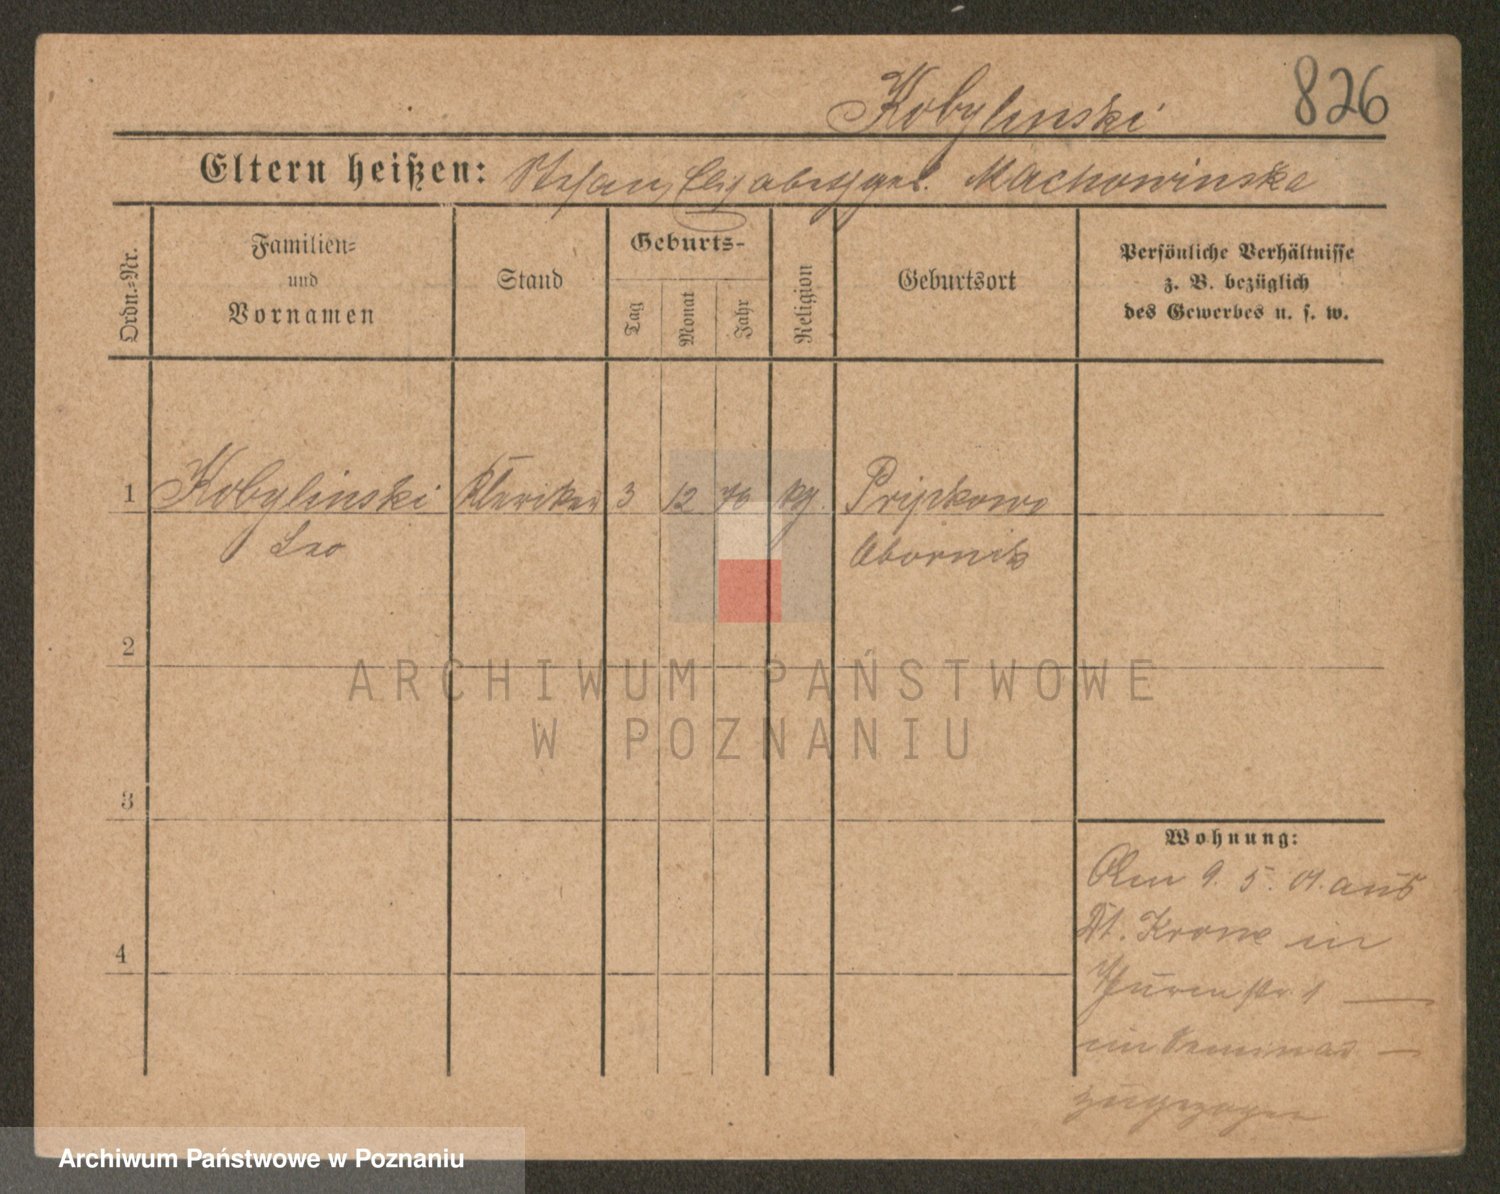 Kobylinski 826
Eltern heißen: Stefan, Elisabeth geb. Machowinska
Ordn.-Nr.
Familien-
und
Vornamen
Stand
Geburts-
Tag
Monat
Jahr
Religion
Geburtsort
Persönliche Verhältnisse
z. B. bezüglich
des Gewerbes u. s. w.
1 Kobylinski Kleriker 3 12 76 kg. Pripkowo
Leo Obornik
2
ARCHIWUM PAŃSTWOWE
W POZNANIU
3
Wohnung:
Am 9. 5. 01. aus
Dt. Krone in
str 1
im Seminar
zugezogen
4
Archiwum Państwowe w Poznaniu